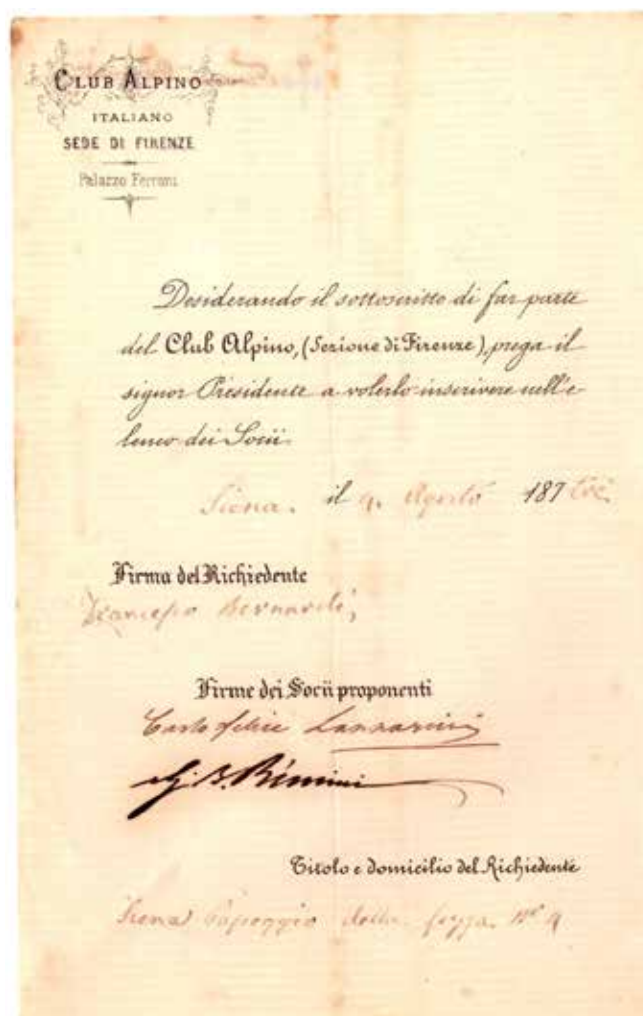 CLUB ALPINO
ITALIANO
SEDE DI FIRENZE
Palazzo Ferroni
Desiderando il sottoscritto di far parte
del Club Alpino, (Sezione di Firenze), prega il
signor Presidente a volerlo inscrivere nell'e
lenco dei Socii.
Siena. il 9. Agosto 187 tre
Firma del Richiedente
Francesco Bernardi
Firme dei Socii proponenti
Carlo felice
G. B. Rimini
Titolo e domicilio del Richiedente
Siena della N° 9